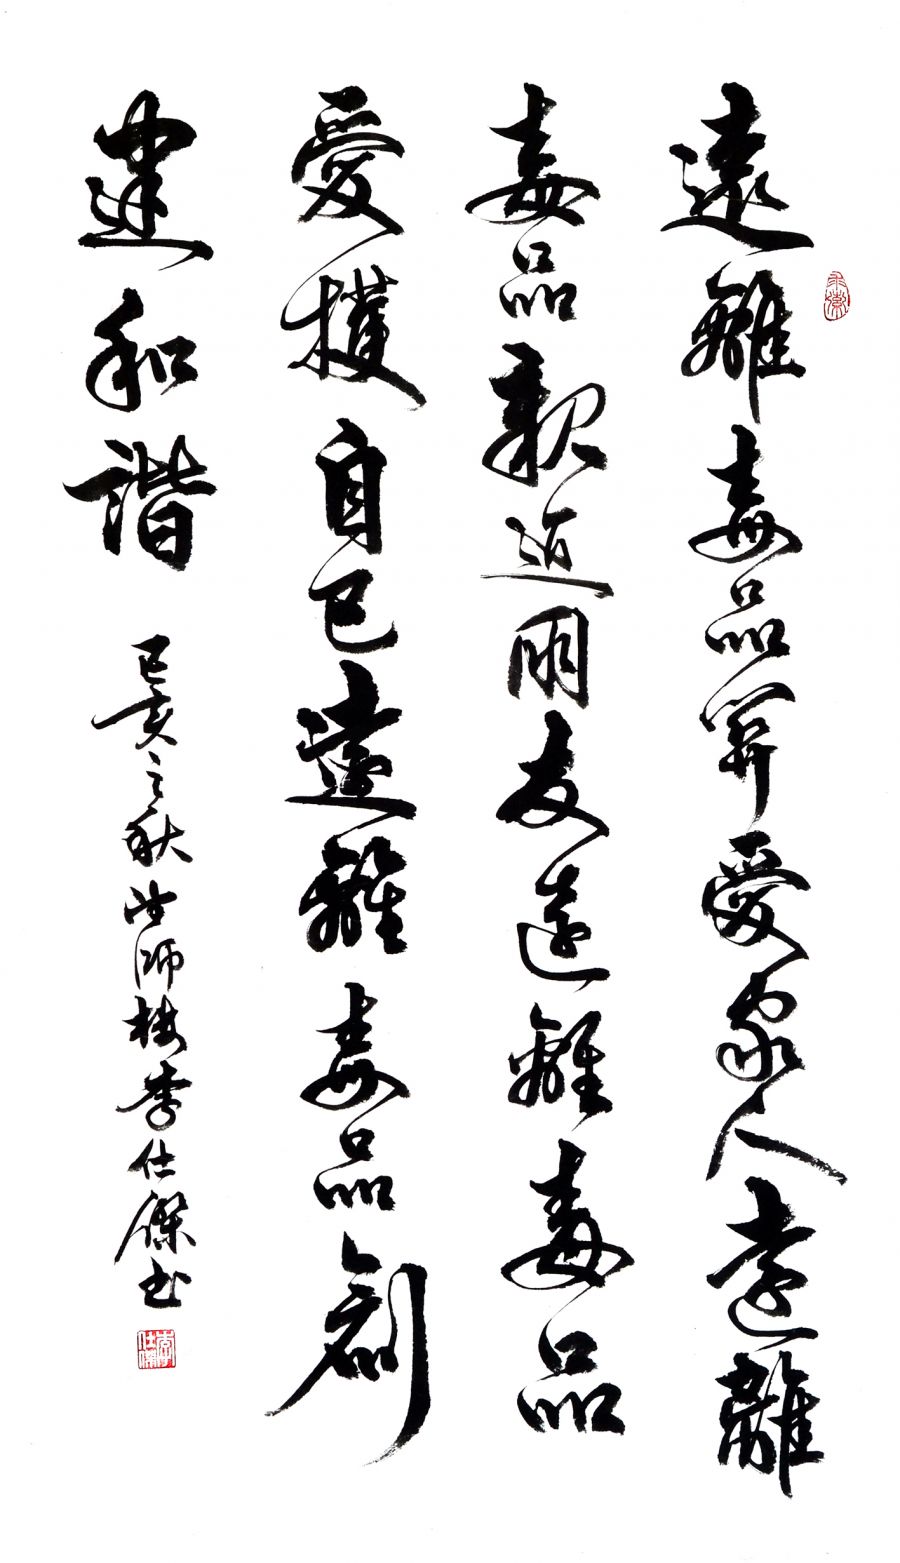 遠離毒品關愛家人遠離
毒品親近朋友遠離毒品
愛護自己遠離毒品創
建和諧
己亥之秋 師樓李仕傑书
李仕傑